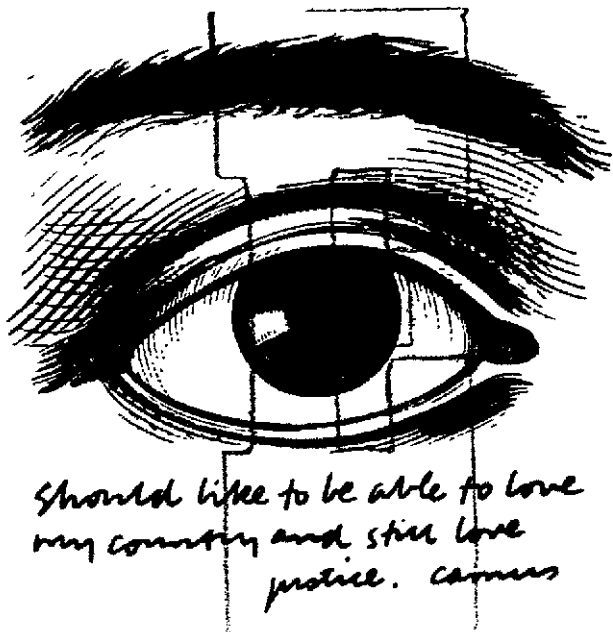 should like to be able to love
my country and still love
justice. camus